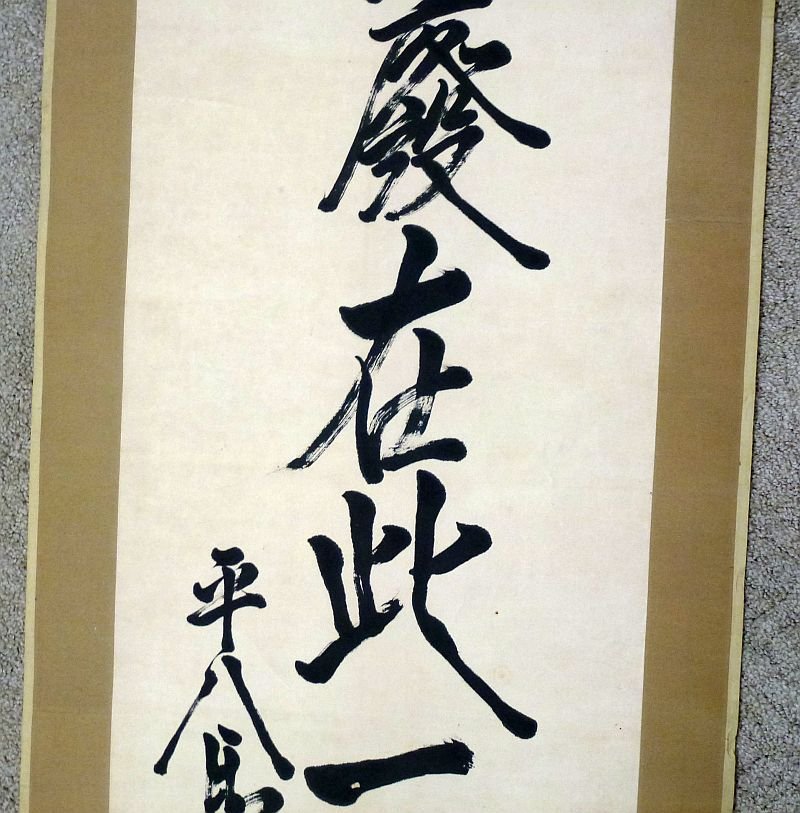 廢在此一
平八郎